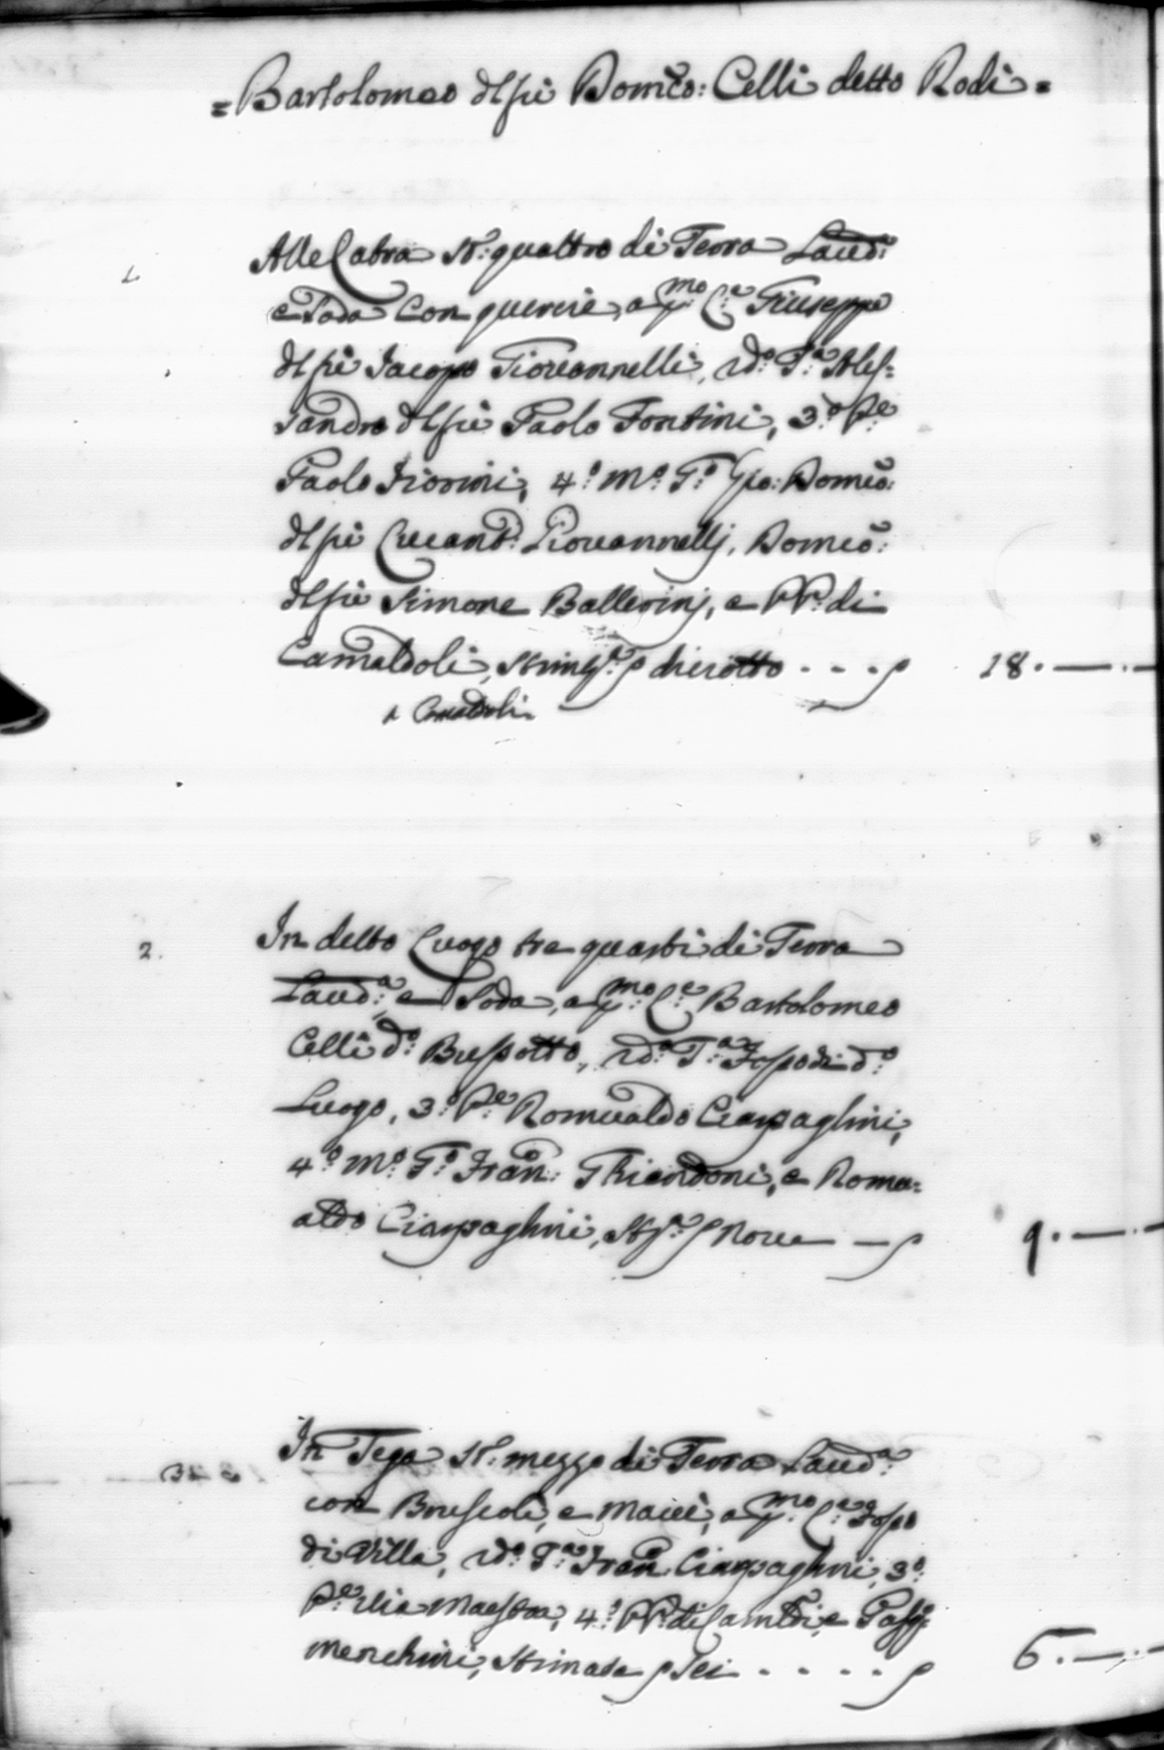 = Bartolomeo dlfù Domco: Celli detto Rodi =
1. Alle Catra st: quattro di Terra Laudª:
e Soda con quercie, a pmo: Ce: Giuseppe
dlfù Jacopo Giovannelli, 2do: Tª: Ales=
sandro dlfù Paolo Fontini, 3º: Pe:
Paolo Fiorini, 4º: Mº: Tº: Gio: Domco:
dlfù Lucantº: Giovannellj, Domco:
dlfù Simone Ballerinj, e PP: di
Camaldoli, diciotto . . . 18. — . —
2. In detto Luogo tre quarti di Terra
Laudª: e Soda, a pmo: Ce: Bartolomeo
Celli dº: Bussotto, 2do: Tª: Fosso di dº:
Luogo, 3º: Pe: Romualdo Ciampaglini,
4º: Mº: Tº: Fran: Ghiandoni, e Romu=
aldo Ciampaglini, Nove — 9. — . —
3. In Tega st: mezzo di Terra Laudª:
con Bruscoli, e Macie, a pmo: Ce: Fosso
di Villa, 2do: Tª: Fran: Ciampaglini, 3º:
Pe: Via Maestra, 4º: PP: di Camldi, e
Menchini, stimata p sei . . . . 6. — . —